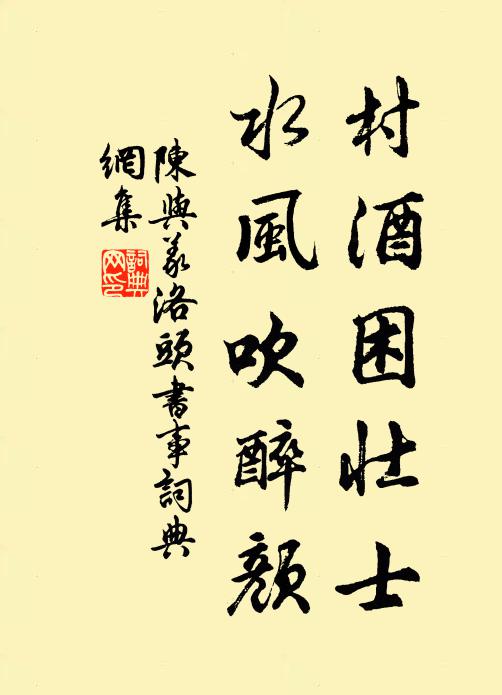 村酒困壮士
水風吹醉顔
陳與義洛頭書事詞典
網集
詞典
网印